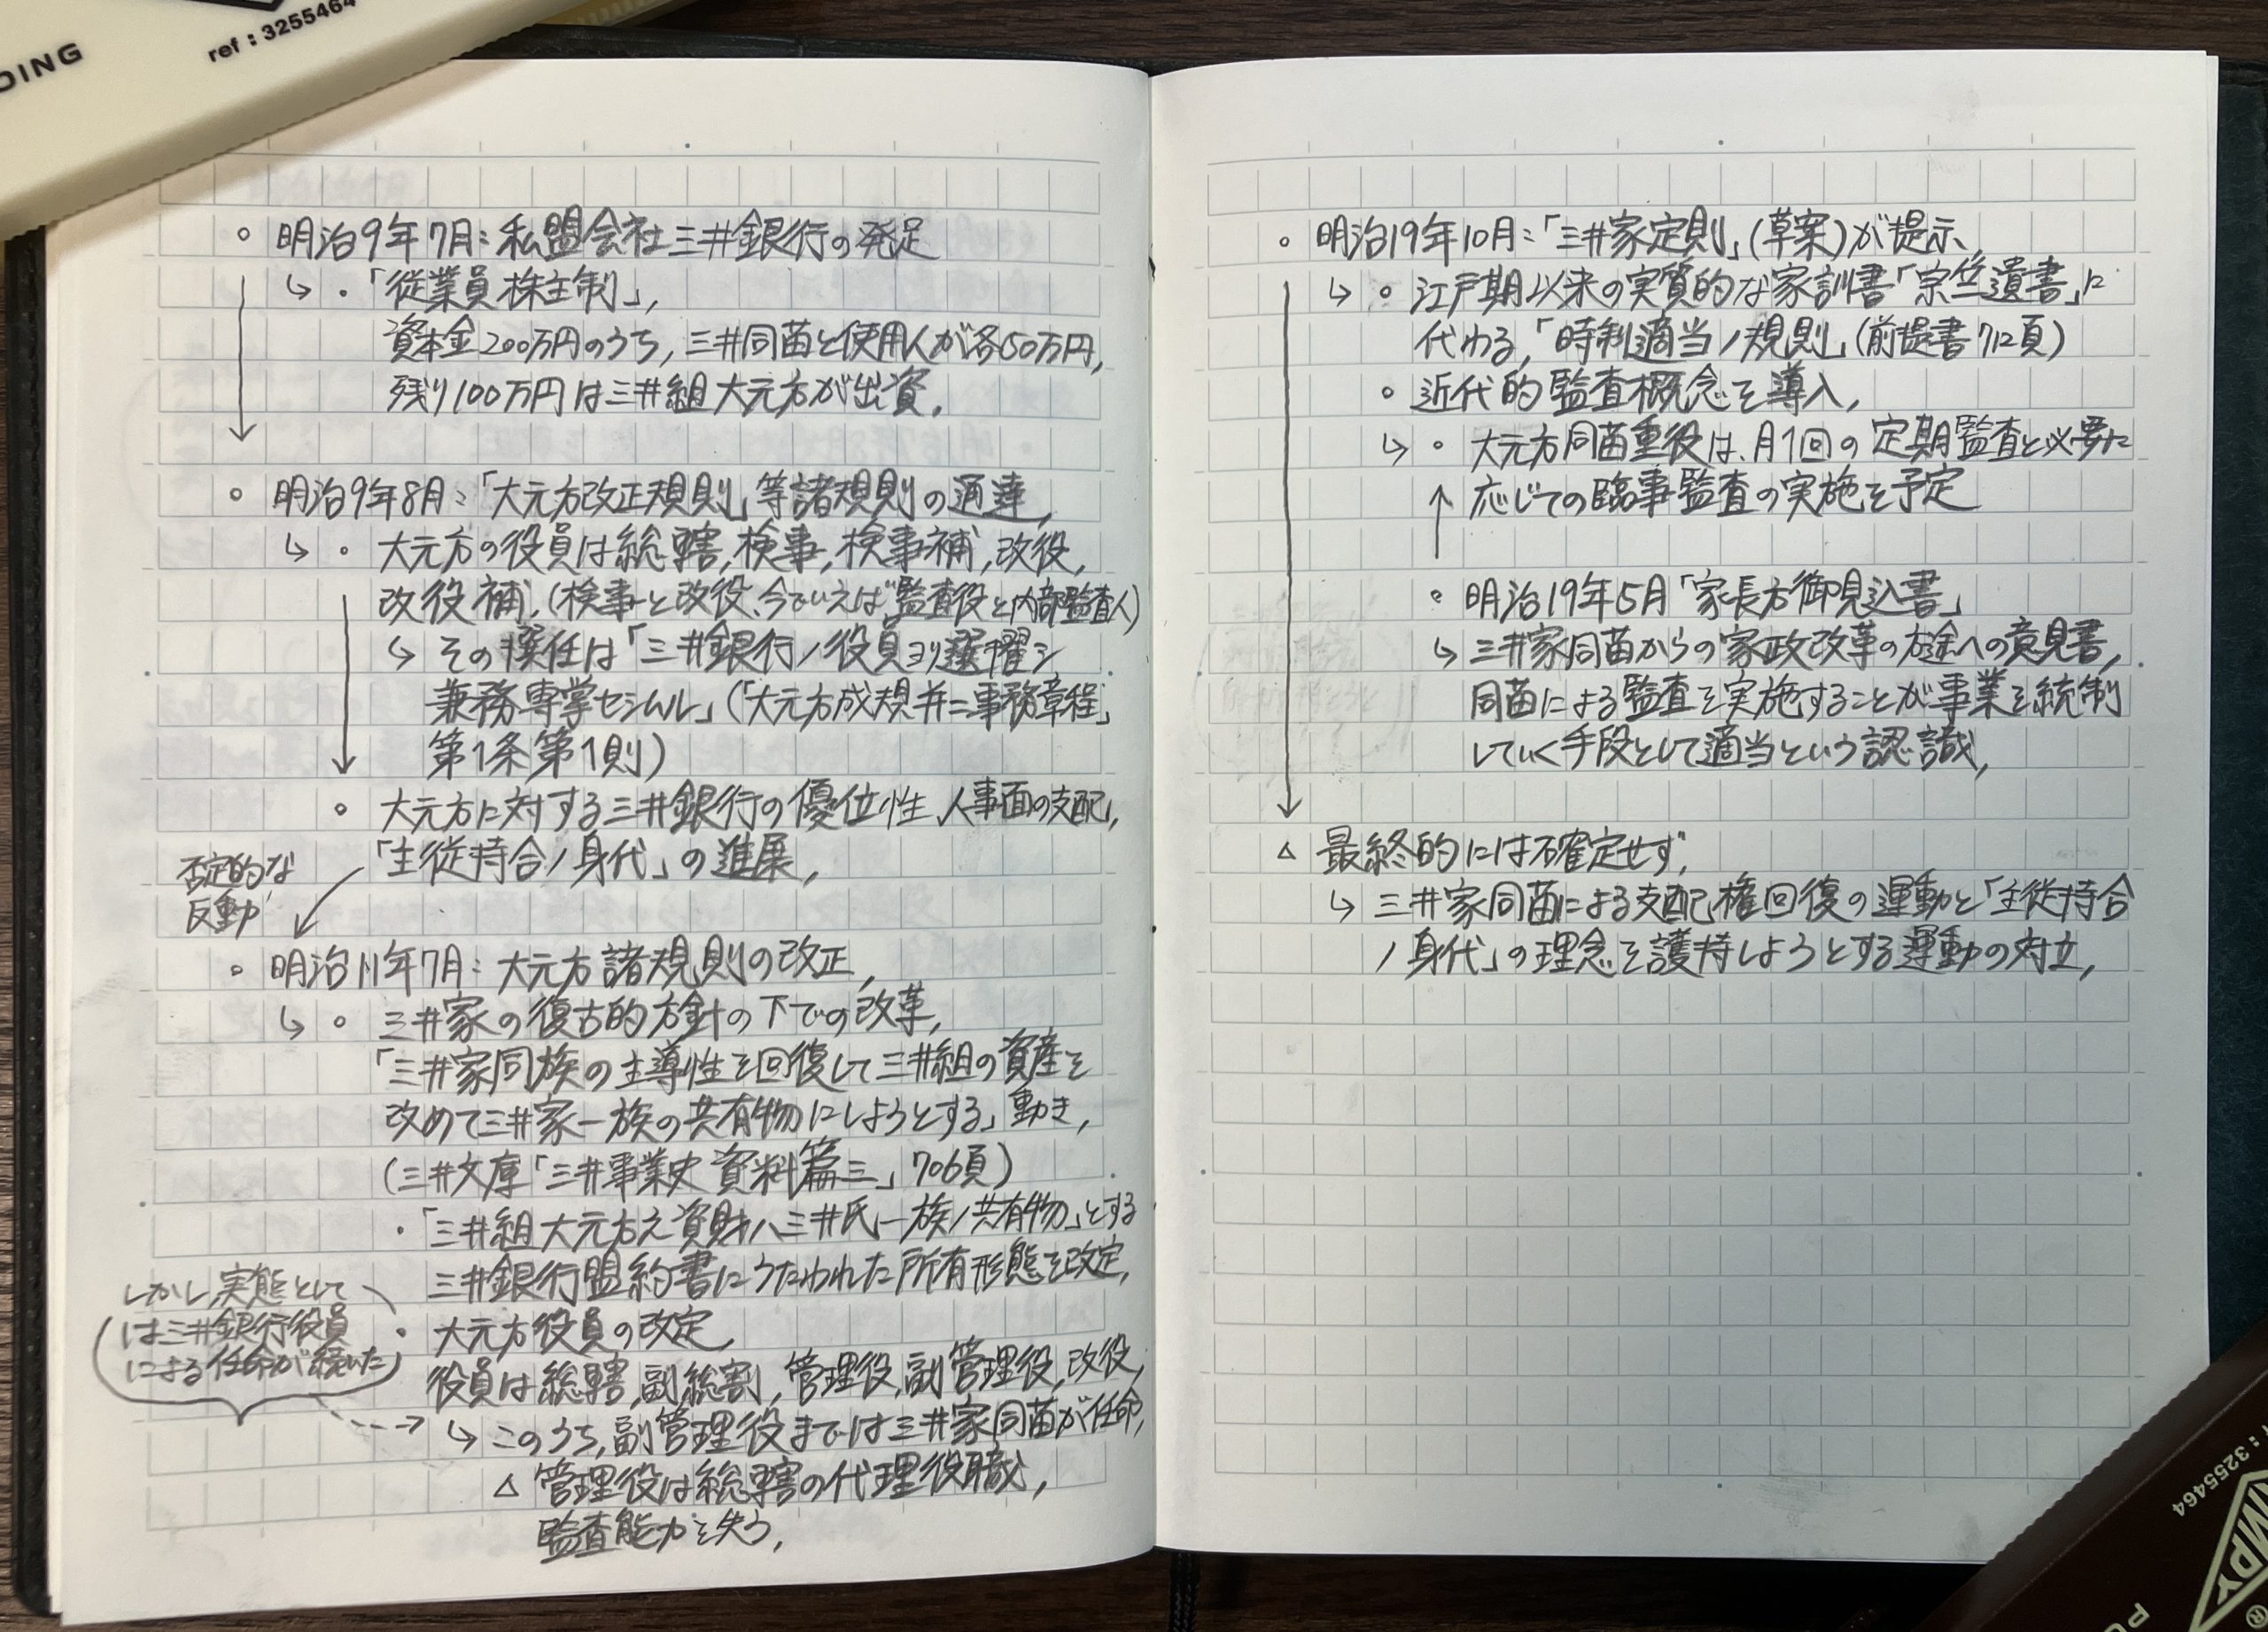 DING
ref : 3255464
。明治9年7月：私盟会社三井銀行の発足
↳・「従業員株主制」，
資本金200万円のうち，三井同苗と使用人が各50万円，
残り100万円は三井組大元方が出資．
。明治9年8月：「大元方改正規則」等諸規則の通達，
↳・大元方の役員は総轄，検事，検事補，改役，
改役補．（検事と改役、今でいえば監査役と内部監査人）
↳その撰任は「三井銀行ノ役員ヨリ選擢シ
兼務専掌セシムル」（「大元方成規并ニ事務章程」
第1条第1則）
。大元方に対する三井銀行の優位性，人事面の支配，
「主従持合ノ身代」の進展，
否定的な
反動
。明治11年7月：大元方諸規則の改正，
↳。三井家の復古的方針の下での改革，
「三井家同族の主導性を回復して三井組の資産を
改めて三井家一族の共有物にしようとする」動き，
（三井文庫「三井事業史 資料篇三」706頁）
・「三井組大元方之資財ハ三井氏一族ノ共有物」とする
三井銀行盟約書にうたわれた所有形態を改定，
しかし，実態として
は三井銀行役員
による任命が続いた
・大元方役員の改定，
役員は総轄，副総割，管理役，副管理役，改役，
↳このうち，副管理役までは三井家同苗が任命，
△管理役は総轄の代理役職，
監査能力を失う，
。明治19年10月：「三井家定則」（草案）が提示，
↳。江戸期以来の実質的な家訓書「宗竺遺書」に
代わる，「時制適当ノ規則」（前提書712頁）
。近代的監査概念を導入，
↳。大元方同苗重役は、月1回の定期監査と必要に
応じての臨事監査の実施を予定
。明治19年5月「家長方御見込書」
↳三井家同苗からの家政改革の方途への意見書，
同苗による監査を実施することが事業を統制
していく手段として適当という認識，
△最終的には不確定せず，
↳三井家同苗による支配権回復の運動と「主従持合
ノ身代」の理念を護持しようとする運動の対立，
3255464
MPY
®